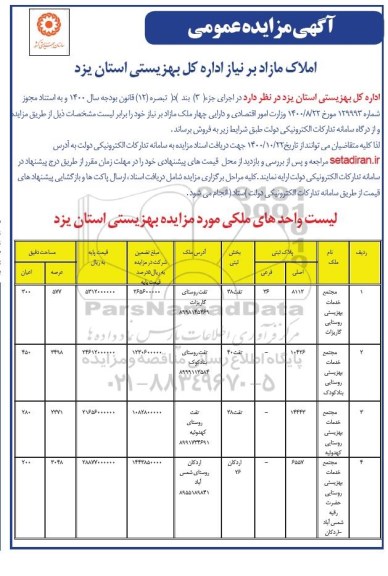 آگهی مزایده عمومی
املاک مازاد بر نیاز اداره کل بهزیستی استان یزد
اداره کل بهزیستی استان یزد در نظر دارد در اجرای جزء( ۳) بند (د) تبصره (۱۲) قانون بودجه سال ۱۴۰۰ و به استناد مجوز
شماره ۱۲۹۹۹۳ مورخ ۱۴۰۰/۸/۲۲ وزارت امور اقتصادی و دارایی چهار ملک مازاد بر نیاز خود را برابر لیست مشخصات ذیل از طریق مزایده
و از درگاه سامانه تدارکات الکترونیکی دولت طبق شرایط زیر به فروش برساند.
لذا کلیه متقاضیان می توانند از تاریخ ۱۴۰۰/۱۰/۲۲ جهت دریافت اسناد مزایده به سامانه تدارکات الکترونیکی دولت به آدرس
setadiran.ir مراجعه و پس از بررسی و بازدید از محل قیمت های پیشنهادی خود را در مهلت زمان مقرر از طریق درج پیشنهاد در
سامانه تدارکات الکترونیکی دولت ارایه نمایند. کلیه مراحل برگزاری مزایده شامل دریافت اسناد، ارسال پاکت ها و بازگشایی پیشنهاد های
قیمت از طریق سامانه تدارکات الکترونیکی دولت (ستاد) انجام می شود.
لیست واحدهای ملکی مورد مزایده بهزیستی استان یزد
ردیف نام ملک پلاک ثبتی اصلی فرعی بخش ثبتی آدرس ملک مبلغ تضمین شرکت در مزایده به ریال ۵درصد قیمت پایه قیمت پایه به ریال مساحت دقیق عرصه اعیان
۱ مجتمع خدمات بهزیستی روستایی گاریزات ۸۱۱۲ ۲۶ تفت۲۸ تفت روستای گاریزات ۲۶۵۶۰۰۰۰۰ ۵۳۱۲۰۰۰۰۰۰ ۵۷۷ ۳۰۰
۲ مجتمع خدمات بهزیستی روستایی بنادکوک ۱۰۴۲۶ – تفت۴۰ تفت روستای بنادکوک ۱۲۳۰۶۰۰۰۰۰ ۲۴۶۱۲۰۰۰۰۰۰ ۳۴۹۸ ۴۵۰
۳ مجتمع خدمات بهزیستی روستایی کهدوئیه ۱۴۴۴۳ – تفت۲۸ تفت روستای کهدوئیه ۸۹۹۱۷۳۴۶۹۱ ۱۰۸۲۸۰۰۰۰۰ ۲۱۶۵۶۰۰۰۰۰۰ ۲۳۷۱ ۲۸۰
۴ مجتمع خدمات بهزیستی روستایی حضرت رقیه شمس آباد –اردکان ۶۵۵۷ – اردکان ۲۶ اردکان روستای شمس آباد ۸۹۵۵۱۸۹۸۴۱ ۱۴۴۳۸۵۰۰۰۰ ۲۸۸۷۷۰۰۰۰۰۰ ۳۰۴۸ ۲۰۰
ParsNamadData
پایگاه اطلاع رسانی مناقصه و مزایده
۰۲۱-۸۸۳۴۹۶۷۰-۵